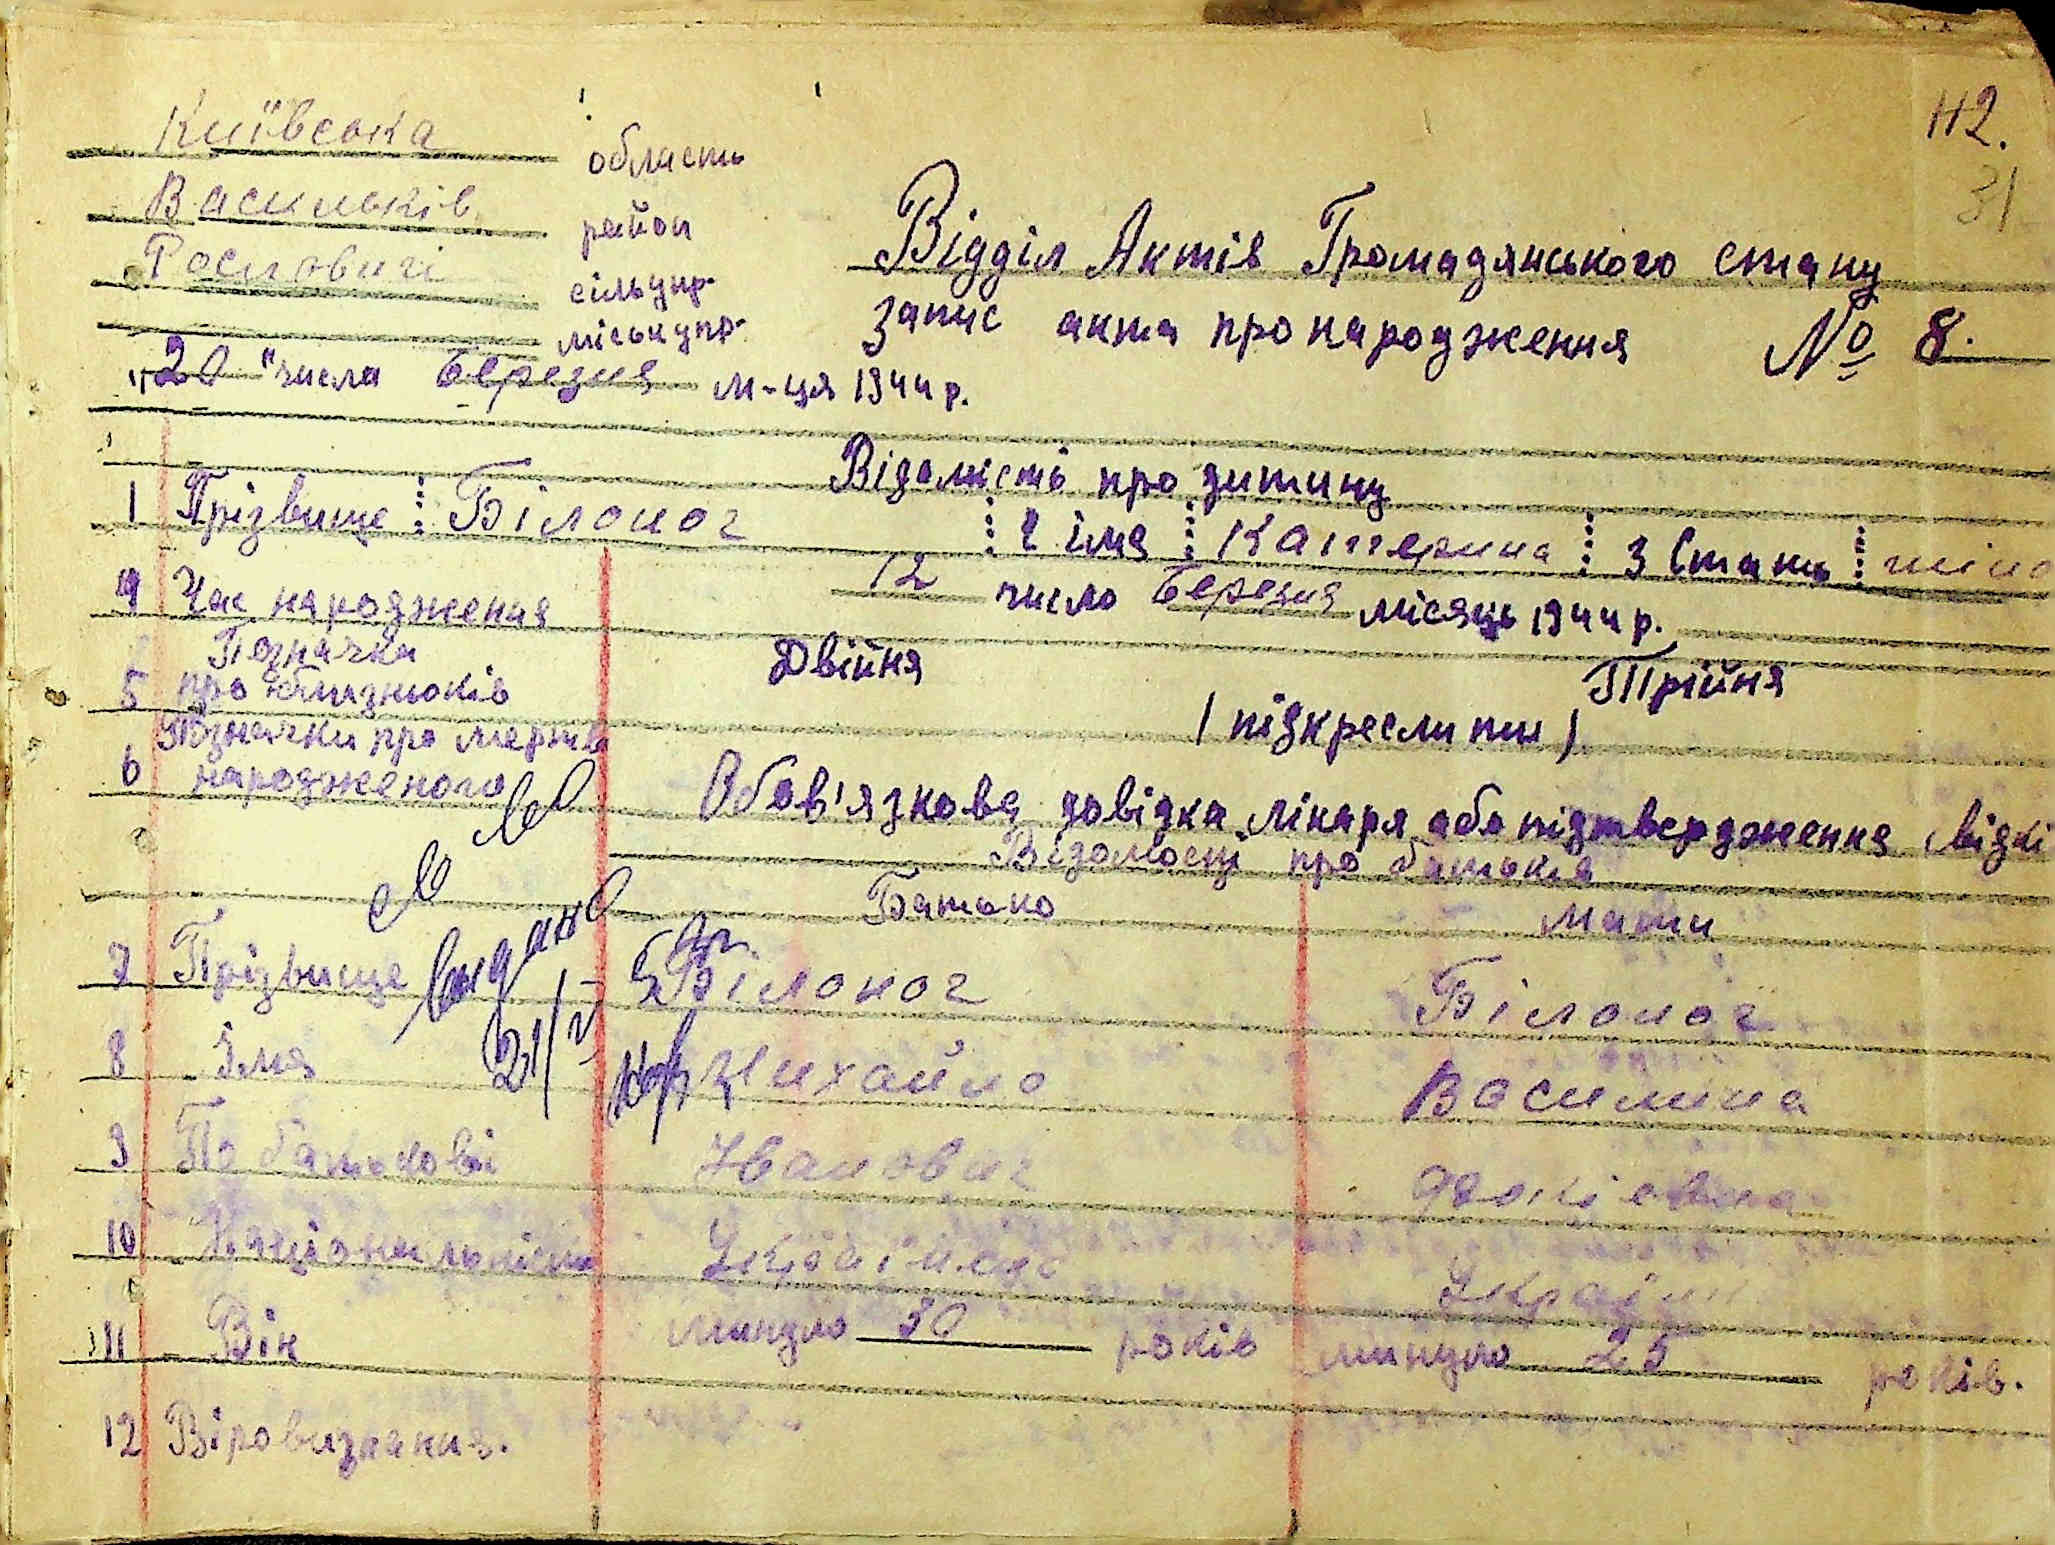 112.
31
Київська область
Васильків район
Росповичі сільупр.
міськупр.
"20" числа Березня м-ця 1944 р.
Відділ Актів Громадянського стану
Запис акта про народження № 8.
Відомість про дитину
1 Прізвище Білоног 2 імя Катерина 3 Стать жіно
4 Час народження 12 число Березня місяць 1944 р.
5 Позначка про близнюків Двійня Трійня
/ підкреслити /
6 Позначки про мертв народженого Обов'язкова довідка лікаря або підтвердження свідкі
Відомості про батьків
Батько Мати
7 Прізвище Білоног Білоног
видано
8 Імя Михайло Василина
9 По батькові Иванович
10 Національність Українец Україн
11 Вік минуло 30 років минуло 25 років.
12 Віровизнання.